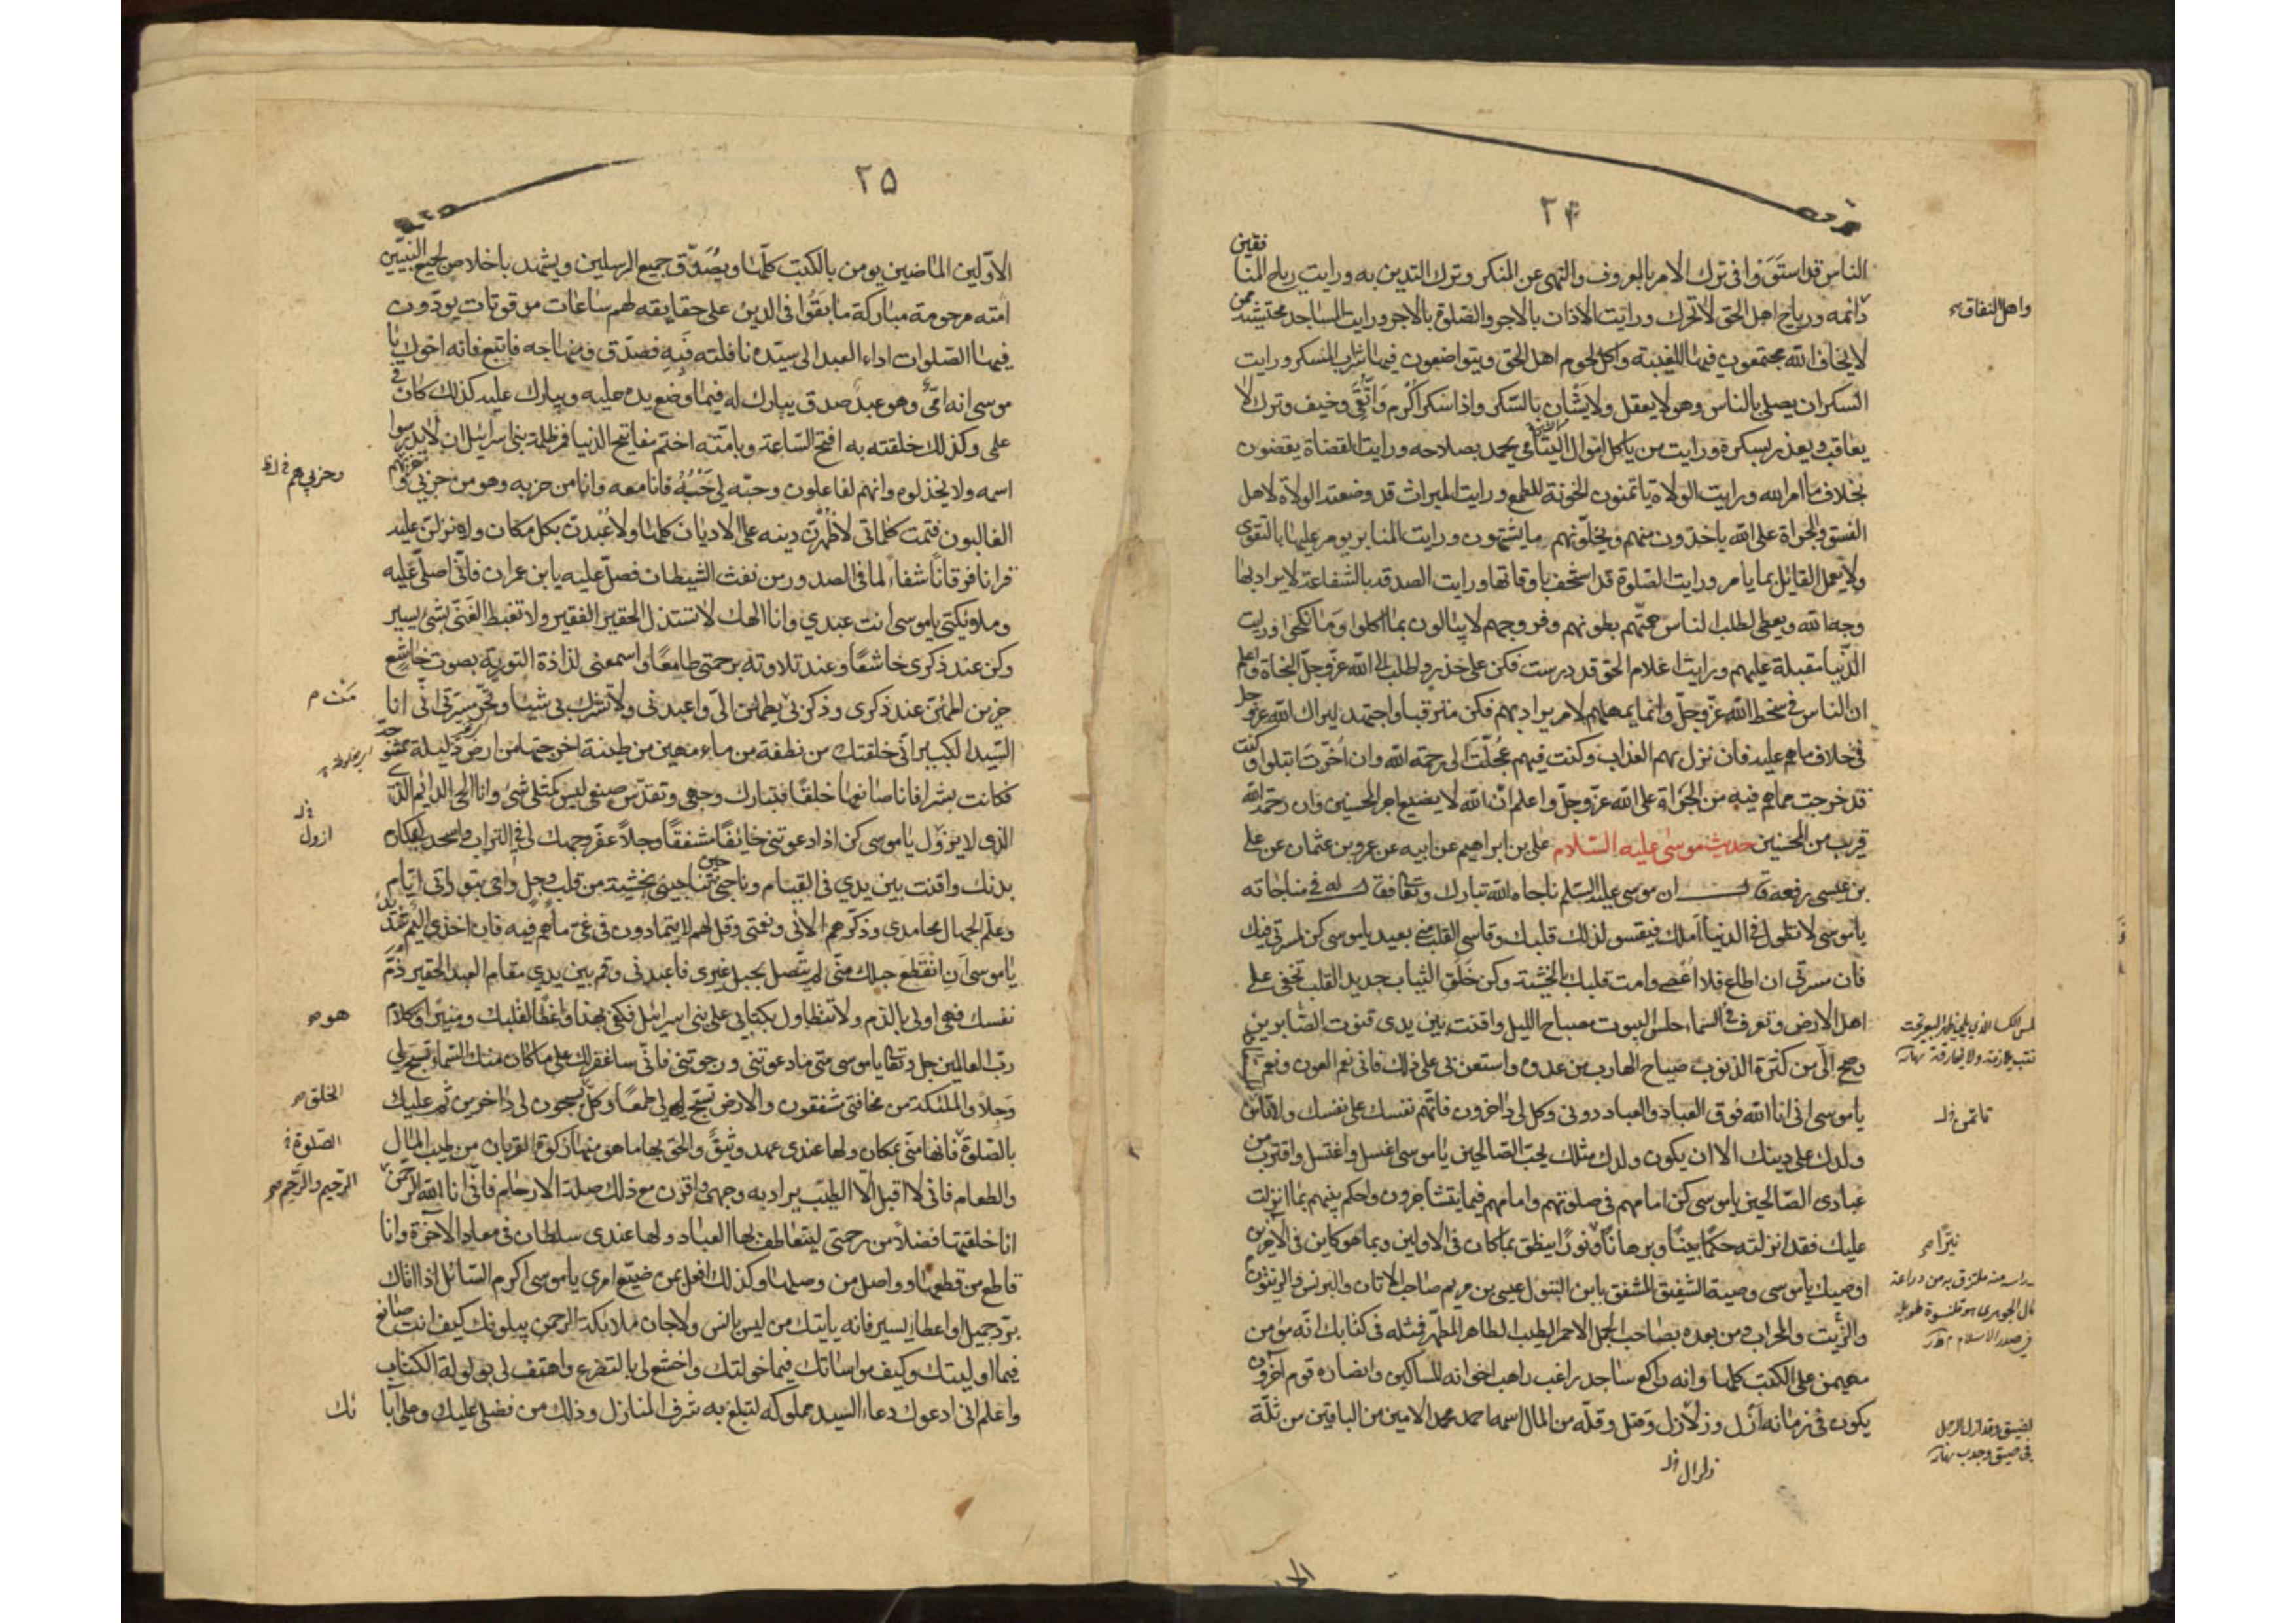 ٢۴
الناس قد استووا فى ترك الامر بالمعروف والنهى عن المنكر وترك التدين به ورايت رياح المنا
فقين
دائمه ورياح اهل الحق لا تحرك ورايت الاذان بالاجر والصلوة بالاجر ورايت المساجد محتشية ممن
لا يخاف الله مجتمعون فيها للغيبة واكل لحوم اهل الحق ويتواصفون فيها شراب المسكر ورايت
السكران يصلى بالناس وهو لا يعقل ولا يشان بالسكر واذا سكر اكرم واتقى وخيف وترك لا
يعاقب ويعذر بسكره ورايت من ياكل اموال اليتامى يحمد بصلاحه ورايت القضاة يقضون
بخلاف ما امر الله ورايت الولاة ياتمنون الخونة للطمع ورايت الميراث قد وضعته الولاة لاهل
الفسق والجراة على الله ياخذون منهم ويخلونهم وما يشتهون ورايت المنابر يومر عليها بالتقوى
ولا يعمل القائل بما يامر ورايت الصلوة قد استخف باوقاتها ورايت الصدقه بالشفاعة لا يراد بها
وجه الله ويعطى لطلب الناس ورايت الناس همهم بطونهم وفروجهم لا يبالون بما اكلوا وما نكحوا ورايت
الدنيا مقبلة عليهم ورايت اعلام الحق قد درست فكن على حذر واطلب الى الله عز وجل النجاة واعلم
ان الناس فى سخط الله عز وجل وانما يمهلهم لامر يراد بهم فكن مترقبا واجتهد ليراك الله عز وجل
فى خلاف ما هم عليه فان نزل بهم العذاب وكنت فيهم عجلت الى رحمة الله وان اخرت ابتلوا وكنت
قد خرجت مما هم فيه من الجراة على الله عز وجل واعلم ان الله لا يضيع اجر المحسنين وان رحمة الله
قريب من المحسنين حديث موسى عليه السلام على بن ابراهيم عن ابيه عن عمرو بن عثمان عن على
بن عيسى رفعه قال ان موسى عليه السلم ناجاه الله تبارك وتعالى فقال له فى مناجاته
يا موسى لا تطول فى الدنيا املك فيقسو لذلك قلبك وقاسى القلب منى بعيد يا موسى كن كمسرتى فيك
فان مسرتى ان اطاع فلا اعصى وامت قلبك بالخشية وكن خلق الثياب جديد القلب تخفى على
اهل الارض وتعرف فى السماء حلس البيوت مصباح الليل واقنت بين يدى قنوت الصابرين
وصح الى من كثرة الذنوب صياح الهارب من عدوه واستعن بى على ذلك فانى نعم العون ونعم
يا موسى انى انا الله فوق العباد والعباد دونى وكل لى داخرون فاتهم نفسك على نفسك ولا تاتمن
ولدك على دينك الا ان يكون ولدك مثلك يحب الصالحين يا موسى اغسل واغتسل واقترب من
عبادى الصالحين يا موسى كن امامهم فى صلوتهم وامامهم فيما يتشاجرون واحكم بينهم بما انزلت
عليك فقد انزلته حكما بينا وبرهانا ونورا ينطق بما كان فى الاولين وبما هو كاين فى الآخرين
اوصيك يا موسى وصية الشفيق المشفق بابن البتول عيسى بن مريم صاحب الاتان والبرنس والزيتون
والزيت والمحراب ومن بعده بصاحب الجمل الاحمر الطيب الطاهر المطهر فمثله فى كتابك انه مؤمن
مهيمن على الكتب كلها وانه راكع ساجد راغب راهب اخوانه المساكين وانصاره قوم آخرون
يكون فى زمانه ازل وزلازل وقتل وقلة من المال اسمه احمد محمد الامين من الباقين من ثلة
واهل النفاق
نيرا
٢۵
الاولين الماضين يومن بالكتب كلها ويصدق جميع المرسلين ويشهد باخلاص لجميع النبيين
امته مرحومة مباركة ما بقوا فى الدين على حقايقه لهم ساعات موقوتات يودون
فيها الصلوات اداء العبد الى سيده نافلته فبه فصدق ومنهاجه فاتبع فانه اخوك يا
موسى انه امى وهو عبد صدق يبارك له فيما وضع يده عليه ويبارك عليه كذلك كان فى
علمى وكذلك خلقته به افتح الساعة وبامته اختم مفاتيح الدنيا فمر ظلمة بنى اسرائيل ان لا يدرسوا
اسمه ولا يخذلوه وانهم لفاعلون وحبه لى حسنة فانا معه وانا من حزبه وهو من حزبى و
الغالبون فتمت كلماتى لاظهرن دينه على الاديان كلها ولاعبدن بكل مكان ولانزلن عليه
قرانا فرقانا شفاء لما فى الصدور من نفث الشيطان فصل عليه يابن عمران فانى اصلى عليه
وملائكتى يا موسى انت عبدي وانا الهك لا تستذل الحقير الفقير ولا تغبط الغنى بشئ يسير
وكن عند ذكرى خاشعا وعند تلاوته برحمتى طامعا واسمعنى لذاذة التورية بصوت خاشع
حزين اطمئن عند ذكرى وذكر بى من يطمئن الى واعبدنى ولا تشرك بى شيئا وتحر مسرتى انى انا
السيد الكبير انى خلقتك من نطفة من ماء مهين من طينة اخرجتها من ارض ذليلة ممشوجة
فكانت بشرا فانا صانعها خلقا فتبارك وجهى وتقدس صنعى ليس كمثلى شئ وانا الحى الدائم
الذى لا يزول يا موسى كن اذا دعوتنى خائفا مشفقا وجلا عفر وجهك لى فى التراب واسجد بمكارم
بدنك واقنت بين يدي فى القيام وناجنى حين تناجينى بخشية من قلب وجل واحى بتوراتى ايام
وعلم الجهال محامدى وذكرهم الائى ونعمتى وقل لهم لا يتمادون فى غى ما هم فيه فان اخذى اليم شديد
يا موسى ان انقطع حبلك منى لم يتصل بحبل غيرى فاعبدنى وقم بين يدي مقام العبد الحقير ذم
نفسك فهى اولى بالذم ولا تتطاول بكتابى على بنى اسرائيل فكفى بهذا واعظا لقلبك ومنيرا وكلام
رب العالمين جل وتعالى يا موسى متى ما دعوتنى ورجوتنى فانى ساغفر لك على ما كان منك السماء تسبح لى
وجلا والملئكة من مخافتى مشفقون والارض تسبح لى طمعا وكل يسبحون لى داخرين ثم عليك
بالصلوة فانها منى بمكان ولها عندى عهد وثيق والحق بها ما هو منها زكوة القربان من طيب المال
والطعام فانى لا اقبل الا الطيب يراد به وجهى واقرن مع ذلك صلة الارحام فانى انا الله الرحمن
انا خلقتها فضلا من رحمتى ليتعاطف بها العباد ولها عندى سلطان فى معاد الآخرة وانا
قاطع من قطعها وواصل من وصلها وكذلك افعل بمن ضيع امرى يا موسى اكرم السائل اذا اتاك
برد جميل او اعطاء يسير فانه ياتيك من ليس بانس ولا جان ملائكة الرحمن يبلونك كيف انت صانع
فيما اوليتك وكيف مواساتك فيما خولتك واخشع لى بالتضرع واهتف لى بولولة الكتاب
واعلم انى ادعوك دعاء السيد مملوكه لتبلغ به شرف المنازل وذلك من فضلى عليك وعلى آبا
الخلق
الصلوة
الرحيم والرحم
ئك